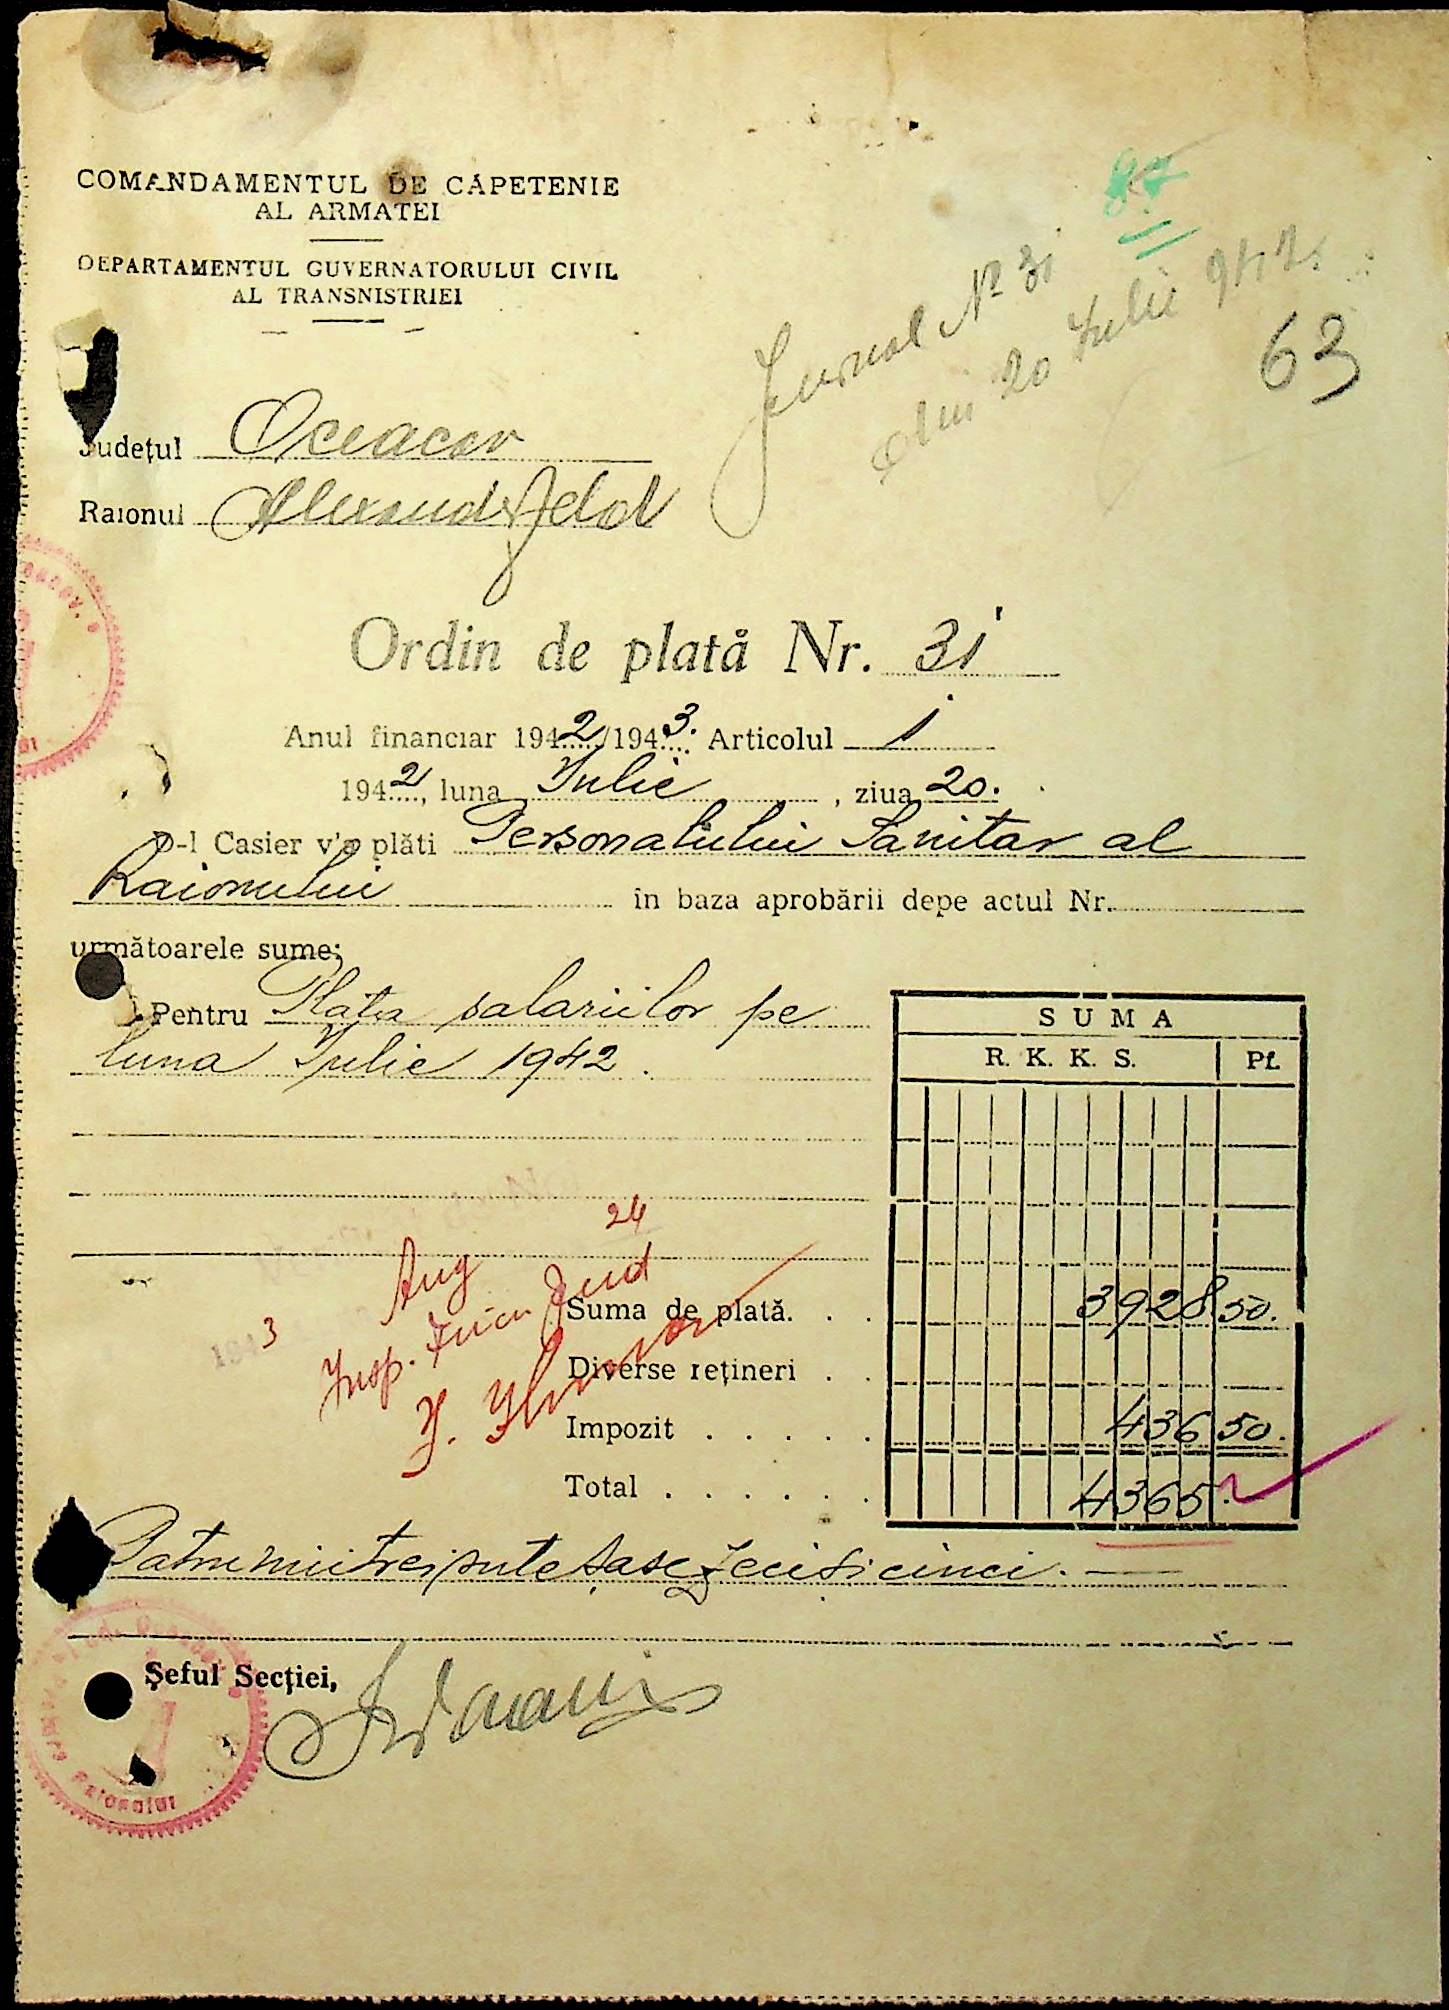 COMANDAMENTUL DE CAPETENIE
AL ARMATEI
DEPARTAMENTUL GUVERNATORULUI CIVIL
AL TRANSNISTRIEI
87
Jurnal № 31
din 20 Iulie 942
63
Județul Oceacov
Raionul Alexanderfeld
Ordin de plată Nr. 31
Anul financiar 1942/1943. Articolul 1
1942, luna Iulie, ziua 20.
D-l Casier v'a plăti Personalului Sanitar al
Raionului în baza aprobării depe actul Nr.
următoarele sume:
Pentru Plata salariilor pe
luna Iulie 1942.
SUMA
R. K. K. S. Pf.
24
Aug
1943
Insp. Jud
Suma de plată. . . 3928 50.
Diverse rețineri . .
Impozit . . . . . 436 50.
Total . . . . . . 4365.
Patru mii trei sute șase zeci și cinci. —
Șeful Secției,
Raionului